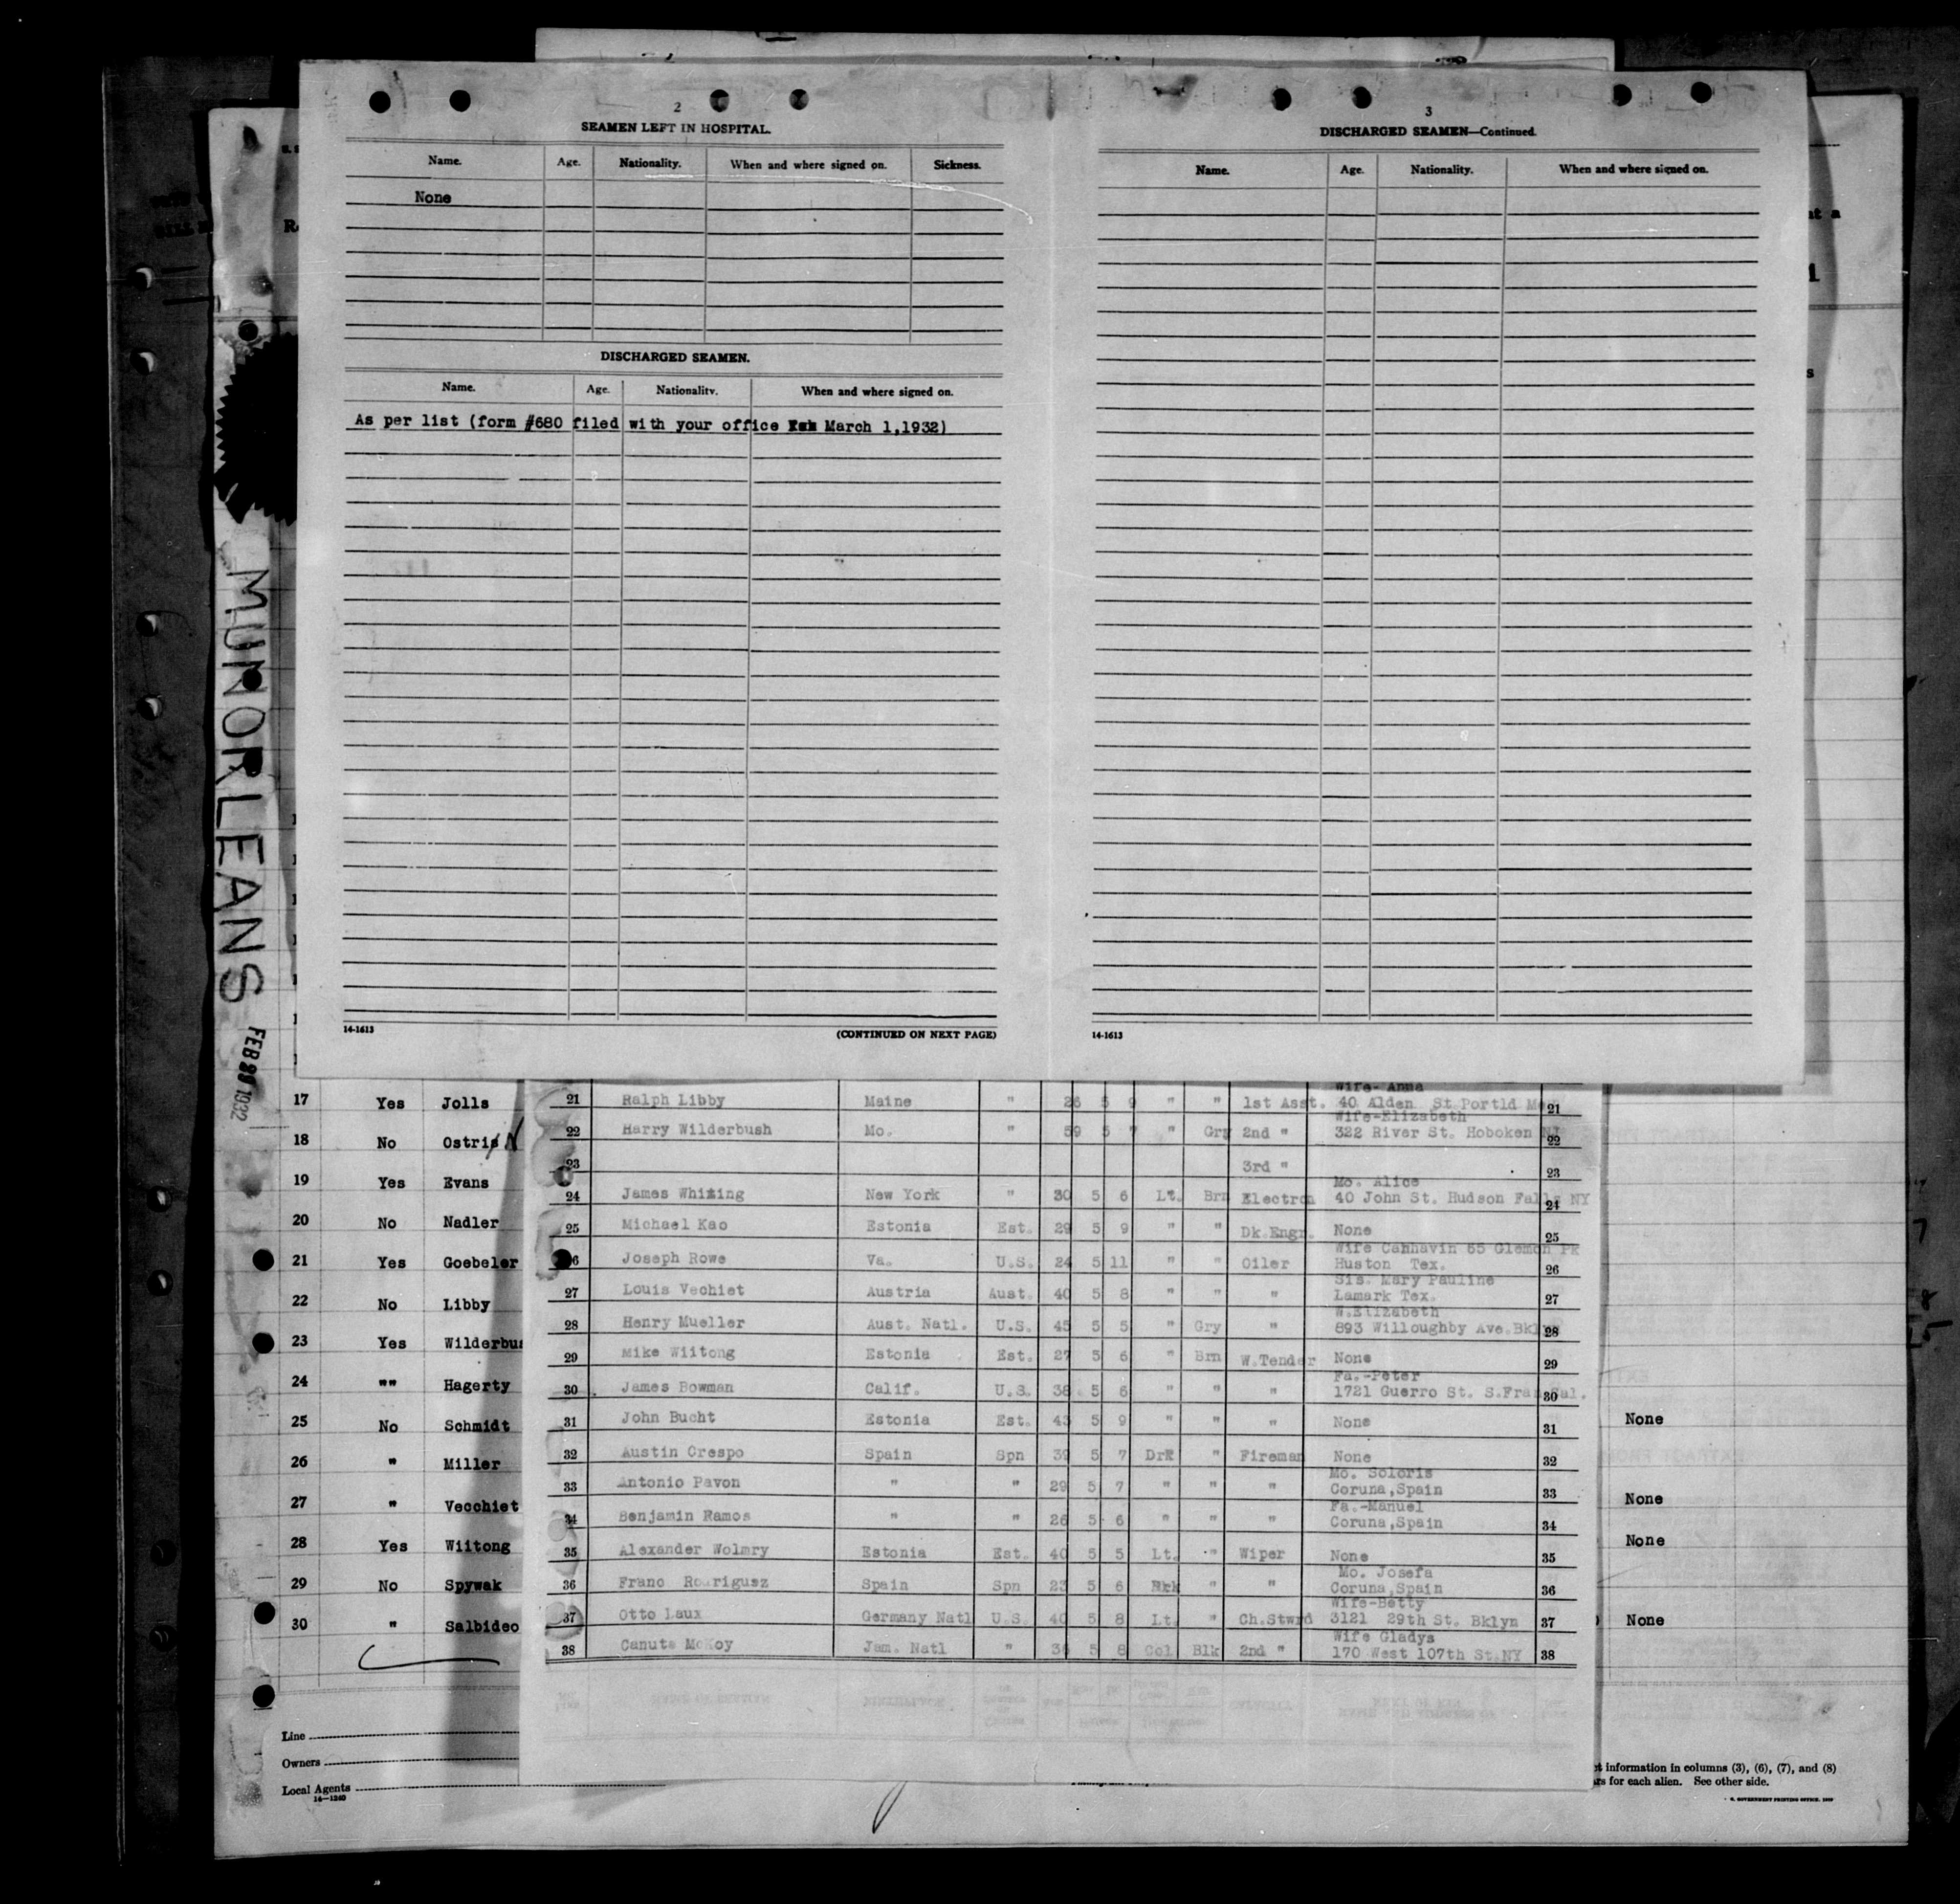 2
SEAMEN LEFT IN HOSPITAL.
Name. Age. Nationality. When and where signed on. Sickness.
None
DISCHARGED SEAMEN.
Name. Age. Nationality. When and where signed on.
As per list (form #680 filed with your office March 1,1932)
14-1613 (CONTINUED ON NEXT PAGE)
3
DISCHARGED SEAMEN—Continued.
Name. Age. Nationality. When and where signed on.
14-1613
MUNORLEANS
FEB 29 1932
17 Yes Jolls
18 No Ostris
19 Yes Evans
20 No Nadler
21 Yes Goebeler
22 No Libby
23 Yes Wilderbus
24 "" Hagerty
25 No Schmidt
26 " Miller
27 " Vecchiet
28 Yes Wiitong
29 No Spywak
30 " Salbideo
Line
Owners
Local Agents
14-1240
Wife- Anna
21 Ralph Libby Maine " 26 5 9 " " 1st Asst. 40 Alden St Portld Me 21
Wife-Elizabeth
22 Harry Wilderbush Mo. " 59 5 7 " Gry 2nd " 322 River St. Hoboken NJ 22
23 3rd " 23
Mo. Alice
24 James Whiting New York " 30 5 6 Lt. Brn Electron 40 John St. Hudson Falls NY 24
25 Michael Kao Estonia Est. 29 5 9 " " Dk.Engr. None 25
Wife Canhavin 65 Glemon Pk
26 Joseph Rowe Va. U.S. 24 5 11 " " Oiler Huston Tex. 26
Sis. Mary Pauline
27 Louis Vechiet Austria Aust. 40 5 8 " " " Lamark Tex. 27
W.Elizabeth
28 Henry Mueller Aust. Natl. U.S. 45 5 5 " Gry " 893 Willoughby Ave.Bklyn 28
29 Mike Wiitong Estonia Est. 27 5 6 " Brn W.Tender None 29
Fa.-Peter
30 James Bowman Calif. U.S. 38 5 6 " " " 1721 Guerro St. S.Fran Cal. 30
31 John Bucht Estonia Est. 43 5 9 " " " None 31
32 Austin Crespo Spain Spn 39 5 7 Drk " Fireman None 32
Mo. Soloris
33 Antonio Pavon " " 29 5 7 " " " Coruna,Spain 33
Fa.-Manuel
34 Benjamin Ramos " " 26 5 6 " " " Coruna,Spain 34
35 Alexander Wolmry Estonia Est. 40 5 5 Lt. " Wiper None 35
Mo. Josefa
36 Franc Rodrigusz Spain Spn 23 5 6 " " Coruna,Spain 36
Wife-Betty
37 Otto Laux Germany Natl U.S. 40 5 8 Lt. " Ch.Stwrd 3121 29th St. Bklyn 37
Wife Gladys
38 Canute McKoy Jam. Natl " 36 5 8 Col Blk 2nd " 170 West 107th St.NY 38
None
None
None
None
information in columns (3), (6), (7), and (8)
for each alien. See other side.
GOVERNMENT PRINTING OFFICE